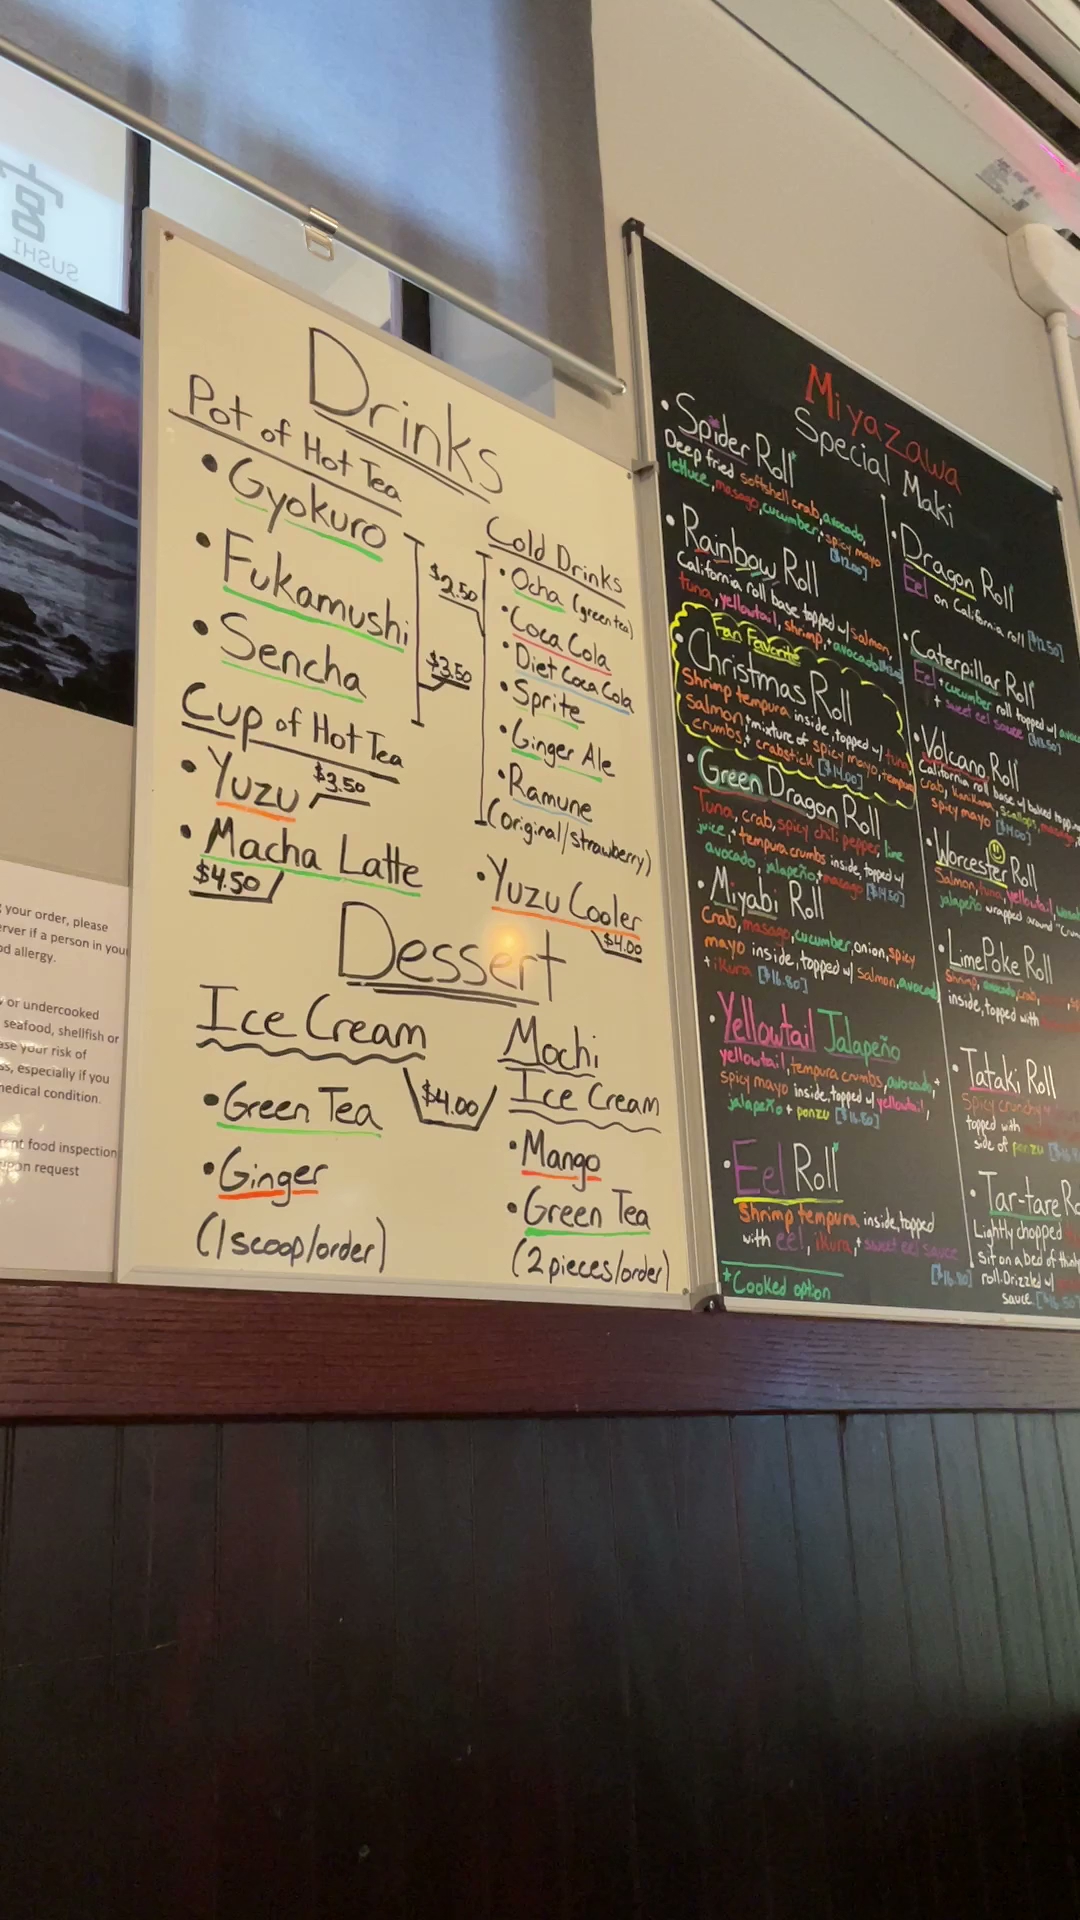 宮
SUSHI
Drinks
Pot of Hot Tea
• Gyokuro
• Fukamushi
• Sencha
$3.50
Cup of Hot Tea
$3.50
• Yuzu
• Macha Latte
$4.50
Cold Drinks
$2.50
• Ocha (green tea)
• Coca Cola
• Diet Coca Cola
• Sprite
• Ginger Ale
• Ramune
(original/strawberry)
• Yuzu Cooler
$4.00
Dessert
Ice Cream
$4.00
• Green Tea
• Ginger
(1 scoop/order)
Mochi
Ice Cream
• Mango
• Green Tea
(2 pieces/order)
Miyazawa
Special Maki
• Spider Roll*
Deep fried softshell crab, avocado,
lettuce, masago, cucumber, + spicy mayo
[$12.00]
• Rainbow Roll
California roll base topped w/ salmon,
tuna, yellowtail, shrimp, + avocado
Fan Favorite
• Christmas Roll
Shrimp tempura inside, topped w/ tuna,
salmon, + mixture of spicy mayo, tempura
crumbs, + crabstick [$14.00]
• Green Dragon Roll
Tuna, crab, spicy chili pepper, lime
juice, + tempura crumbs inside, topped w/
avocado, jalapeño, + masago [$14.50]
• Miyabi Roll
Crab, masago, cucumber, onion, spicy
mayo inside, topped w/ salmon, avocado,
+ ikura [$16.80]
• Yellowtail Jalapeño
yellowtail, tempura crumbs, avocado, +
spicy mayo inside, topped w/ yellowtail,
jalapeño + ponzu [$16.80]
• Eel Roll*
Shrimp tempura inside, topped
with eel, ikura, + sweet eel sauce
*Cooked option
• Dragon Roll*
Eel on California roll [$12.50]
• Caterpillar Roll*
Eel + cucumber roll topped w/
+ sweet eel sauce [$13.50]
• Volcano Roll
California roll base w/ baked
crab, Kanikama, scallops, masago,
spicy mayo [$14.00]
• Worcester Roll
Salmon, tuna, yellowtail,
jalapeño wrapped around
• Lime Poke Roll
Shrimp, avocado, crab,
inside, topped with
• Tataki Roll
Spicy crunchy
topped with
side of ponzu
• Tar-tare
Lightly chopped
sit on a bed of
roll. Drizzled w/
sauce.
your order, please
if a person in your
allergy.
or undercooked
seafood, shellfish or
your risk of
especially if you
medical condition.
food inspection
request